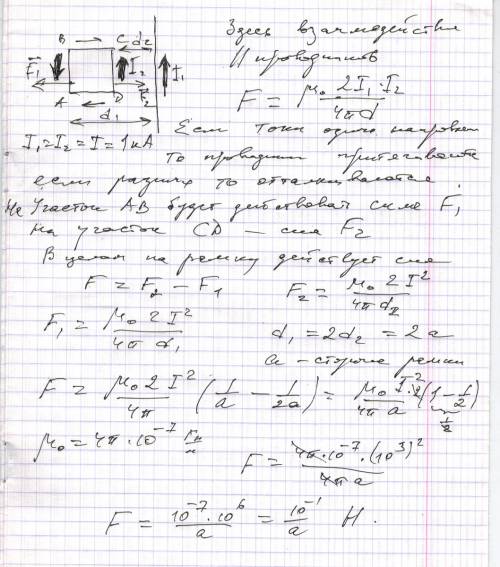 B → C d₂
F⃗₁ I₂ I₁
F⃗₂
A ← D
d₁
Здесь взаимодействие
|| проводников
F = μ₀ 2I₁·I₂ / 4πd
Если токи одного направлен
I₁ = I₂ = I = 1кА
то проводники притягиваются
если разных то отталкиваются.
На участок AB будет действовать сила F₁
на участок CD – сила F₂
В целом на рамку действует сила
F = F₂ − F₁ F₂ = μ₀ 2I² / 4π d₂
F₁ = μ₀ 2I² / 4π d₁ d₁ = 2d₂ = 2a
a – сторона рамки
F = μ₀ 2I² / 4π (1/a − 1/2a) = μ₀ I²·2 / 4π a (1 − 1/2) 1/2
μ₀ = 4π·10⁻⁷ Гн/м F = 4π·10⁻⁷·(10³)² / 4π a
F = 10⁻⁷·10⁶ / a = 10⁻¹ / a Н.